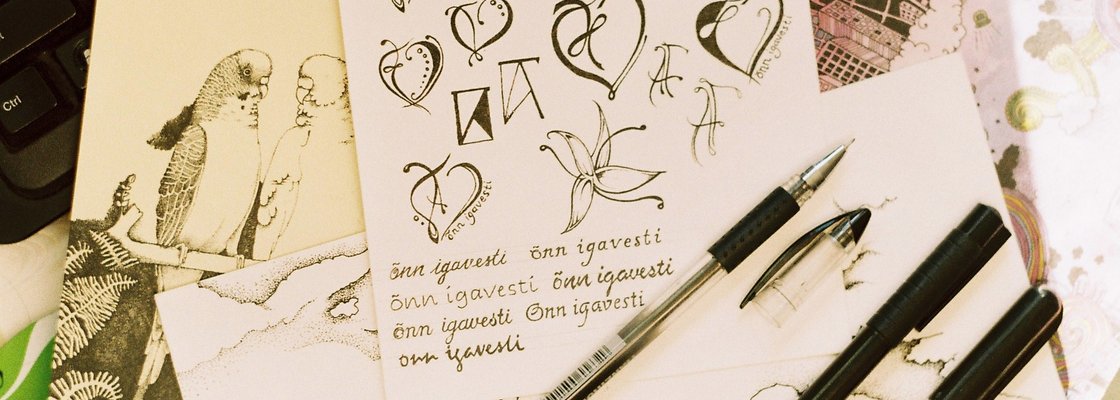 Ctrl
õnn igavesti
õnn igavesti
õnn igavesti õnn igavesti
õnn igavesti õnn igavesti
õnn igavesti Õnn igavesti
õnn igavesti